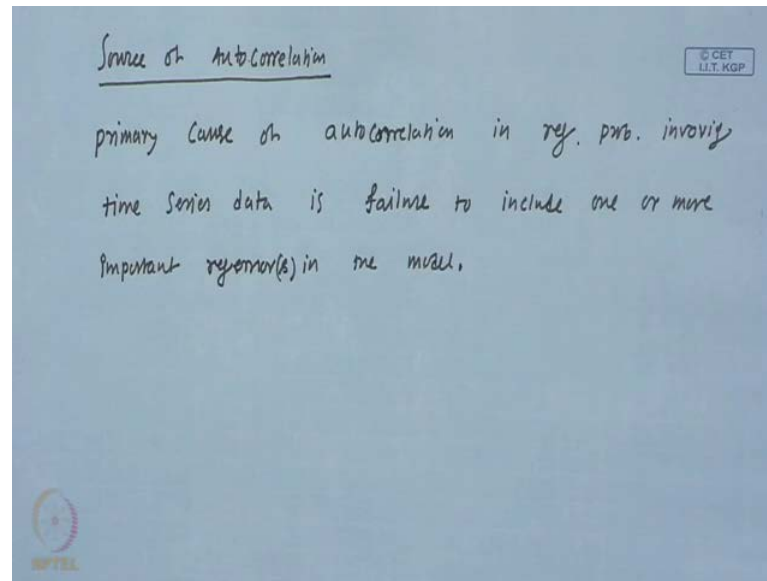 Source of Autocorrelation
© CET
I.I.T. KGP
primary cause of autocorrelation in reg. prob. invovig
time series data is failure to include one or more
important regressor(s) in the model.
NPTEL